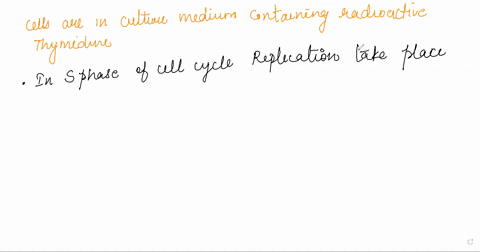 cells are in culture medium containing radioactive
Thymidine
. In S phase of cell cycle Replication take place